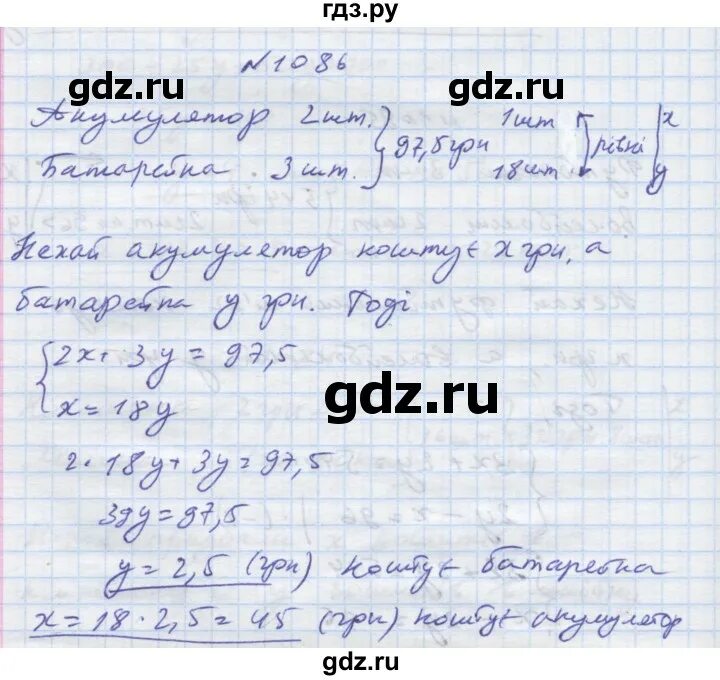 гдз.ру
№1086
gdz.ru gdz.ru
Акумулятор 2шт. 97,5грн 1шт рівні x
Батарейка . 3шт. 18шт y
Нехай акумулятор коштує x грн, а
батарейка y грн. Тоді
2x+ 3y = 97,5
x = 18y
gdz.ru
2·18y+ 3y = 97,5
39y = 97,5
y = 2,5 (грн) коштує батарейка
x = 18·2,5 = 45 (грн) коштує акумулятор
gdz.ru